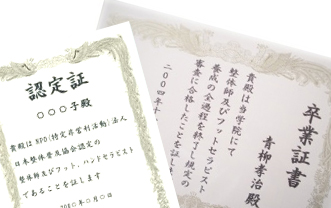 認定証
○○○子殿
貴殿はNPO(特定非営利活動)法人
日本整体普及協会認定の
整体師及びフット、ハンドセラピスト
であることを証します
卒業証書
青柳孝治殿
貴殿は当学院にて
整体師及びフットセラピスト
養成の全過程を終了し規定の
審査に合格したことを証しま
二〇〇四年十